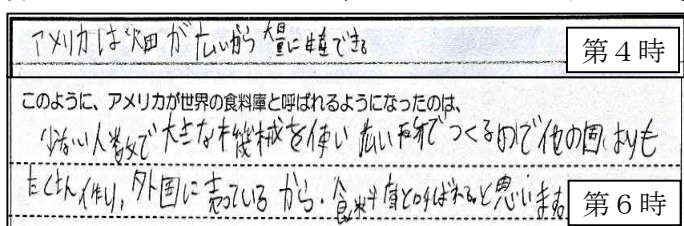 アメリカは畑が広いから大量に生産できる
第4時
このように、アメリカが世界の食料庫と呼ばれるようになったのは、
少ない人数で大きな機械を使い広い面積でつくるので他の国よりも
たくさん作り,外国に売っているから.食料庫と呼ばれると思います
第6時